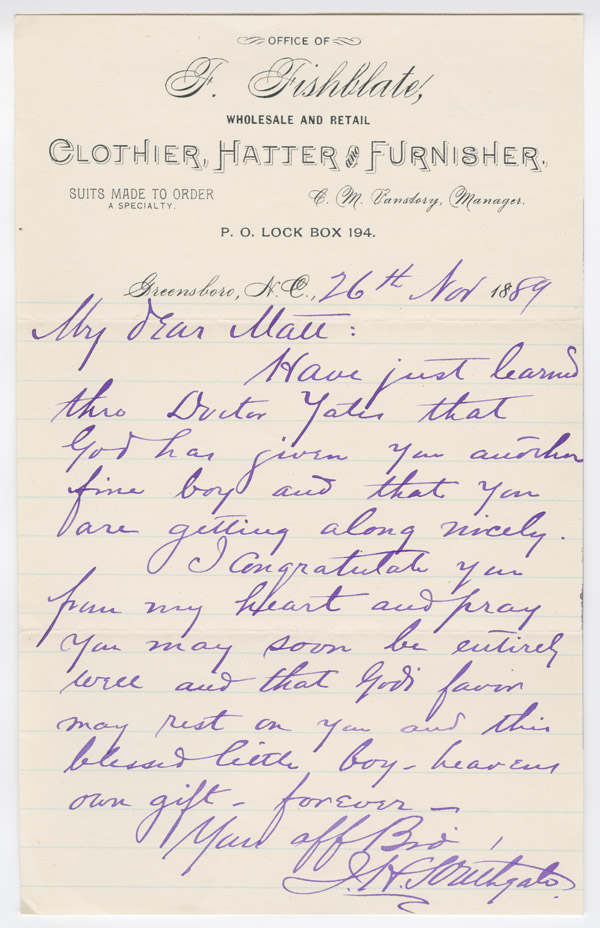 OFFICE OF
F. Fishblate,
WHOLESALE AND RETAIL
CLOTHIER, HATTER AND FURNISHER.
SUITS MADE TO ORDER
A SPECIALTY.
C. M. Vanstory, Manager.
P. O. LOCK BOX 194.
Greensboro, N. C., 26th Nov 1889
My dear Matt:
Have just learned
thro Doctor Yates that
God has given you another
fine boy and that you
are getting along nicely.
I Congratulate you
from my heart and pray
you may soon be entirely
well and that God's favor
may rest on you and this
blessed little boy - heavens
own gift - forever -
Your aff Bro,
J. H. Southgate